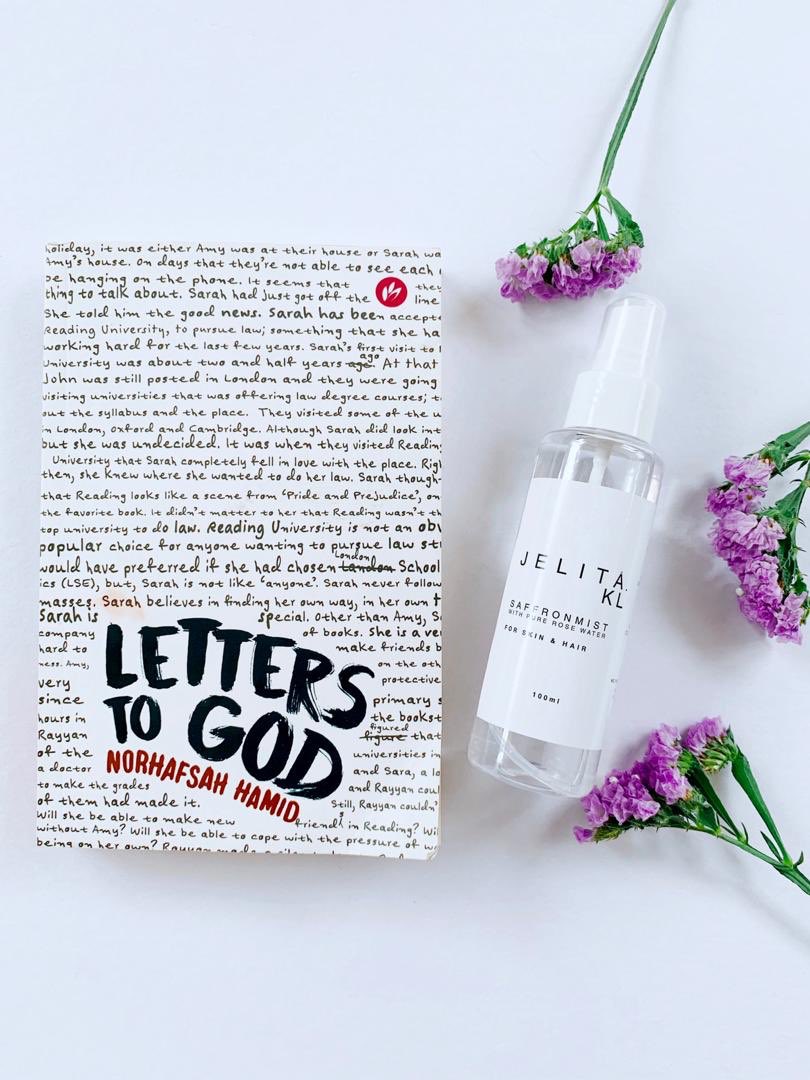 holiday, it was either Amy was at their house or Sarah wa
Amy's house. On days that they're not able to see each
be hanging on the phone. It seems that they
thing to talk about. Sarah had just got off the line
She told him the good news. Sarah has been accept
Reading University, to pursue law; something that she ha
working hard for the last few years. Sarah's first visit to
ago
University was about two and half years age. At that
John was still posted in London and they were going
visiting universities that was offering law degree courses; t
out the syllabus and the place. They visited some of the u
in London, Oxford and Cambridge. Although Sarah did look int
but she was undecided. It was when they visited Readin
University that Sarah completely fell in love with the place. Rig
then, she knew where she wanted to do her law. Sarah though
that Reading looks like a scene from 'Pride and Prejudice', on
the favorite book. It didn't matter to her that Reading wasn't th
top university to do law. Reading University is not an obv
popular choice for anyone wanting to pursue law st
London
would have preferred if she had chosen tandon School
ics (LSE), but, Sarah is not like 'anyone'. Sarah never follow
masses. Sarah believes in finding her own way, in her own t
Sarah is special. Other than Amy, S
company of books. She is a ve
hard to make friends b
ness. Amy, on the oth
very protective
since primary s
hours in the books
figured
Rayyan figure that
of the universities in
a doctor and Sara, a lo
to make the grades and Rayyan coul
of them had made it. Still, Rayyan couldn'
LETTERS
TO GOD
NORHAFSAH HAMID
s
Will she be able to make new friend in Reading? Wi
without Amy? Will she be able to cope with the pressure of w
being on her own? Rayyan made a
JELITA.
KL
SAFFRONMIST
WITH PURE ROSE WATER
FOR SKIN & HAIR
100ml